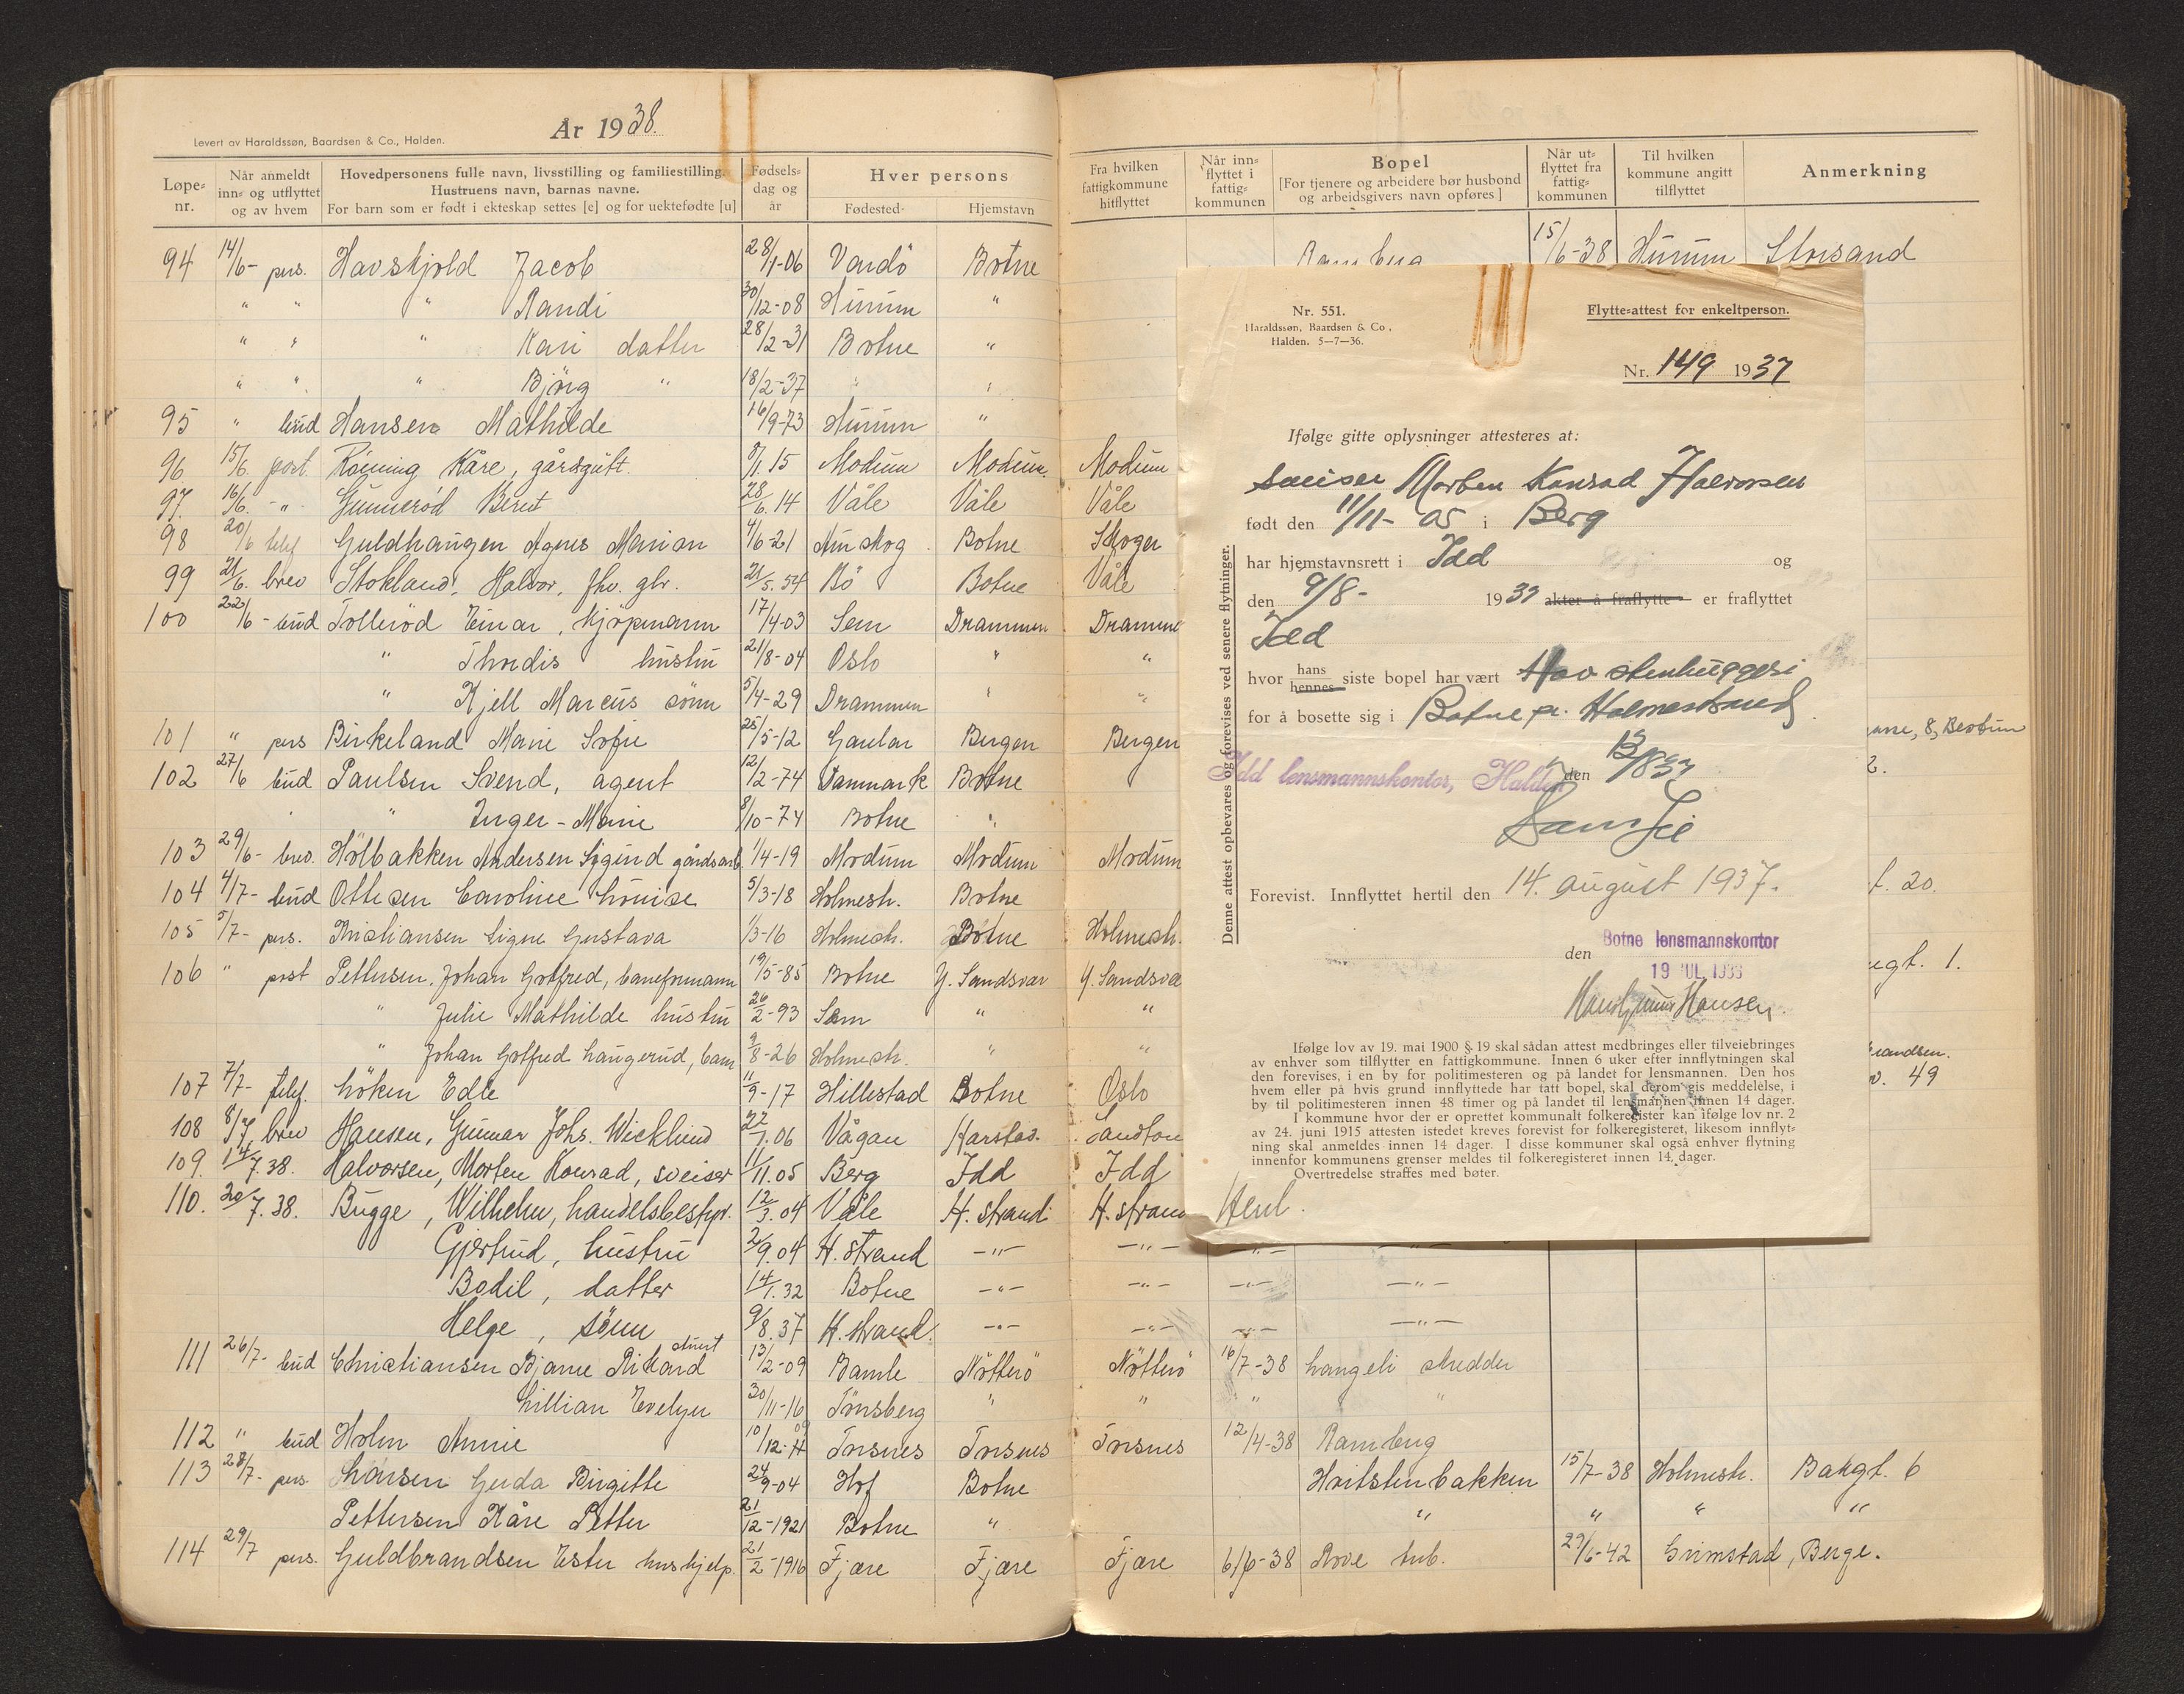 År 1938.
Levert av Haraldssøn, Baardsen & Co., Halden.
Løpe-nr. | Når anmeldt inn- og utflyttet og av hvem | Hovedpersonens fulle navn, livsstilling og familiestilling. Hustruens navn, barnas navne. For barn som er født i ekteskap settes [e] og for uektefødte [u] | Fødselsdag og år | Hver persons Fødested | Hjemstavn
94 14/6- pers. Havskjold Jacob 28/1-06 Vardö Botne
" " " Randi 30/12-08 Hurum "
" " " Kari datter 28/2-31 Botne "
" " " Bjørg " 18/2-37 " "
95 " bud Hansen Mathilde 16/9-73 Hurum "
96 15/6. post. Röining Kåre, gårdsgutt. 8/1.15 Modum Modum Modum
97. 16/6. -"- Gunnerød Berit 28/6.14 Våle Våle Våle
98 20/6 telef Guldhaugen Agnes Marion 4/6-21 Aurskog Botne Skoger
99 21/6. brev Stokland, Halvor, fhv. gbr. 21/5.54 Bö Botne Våle
100 22/6- bud Tollerød Einar, kjöpmann 17/4-03 Sem Drammen Drammen
" Thordis hustru 21/8-04 Oslo " "
" Kjell Marcus sönn 5/4-29 Drammen " "
101 " pers Birkeland Marie Sofie 25/5-12 Gaular Bergen Bergen
102 27/6 bud Paulsen Svend, agent 12/2-74 Danmark Botne
" Inger-Marie 8/10-74 Botne "
103 29/6- brev. Hölbakken Andersen Sigurd gårdsarb 1/4-19 Modum Modum Modum
104 4/7- bud Ottesen Caroline Louise 5/3-18 Holmestr. Botne
105 5/7- pers. Kristiansen Signe Gustava 1/3-16 Holmestr. Botne Holmestr.
106 " post Pettersen. Johan Gotfred, baneformann 19/5-85 Botne Y. Sandsvær Y. Sandsvæ
" Julie Mathilde hustru 26/2-93 Sem " "
" Johan Gotfred Haugerud, barn 9/8-26 Holmestr. " "
107 7/7- telef. Löken Edle 11/9-17 Hillestad Botne Oslo
108 8/7 brev Hansen, Gunnar Johs. Wicklund 22/7.06 Vågan Harstad. Sandtor
109. 14/7.38. Halvorsen, Morten Konrad, sveiser 11/11.05 Berg Idd Idd
110. 20/7.38. Bugge, Wilhelm, handelsbestyr. 12/3.04 Våle H. strand H. strand
Gjertrud, hustru 2/9.04 H. strand -"- -"- -"- -"-
Bodil, datter 14/1.32 Botne -"- -"- -"- -"-
Helge, sönn 9/8.37 H. strand. -"- -"- -"- -"-
111 26/7- bud Christiansen Bjarne Rikard 13/2-09 Bamle Nötterö Nötterö 16/7-38 Langeli skredder
Lillian Evelyn 30/11-16 Tönsberg " " " "
112 " bud Holm Annie 10/12-09 Torsnes Torsnes Torsnes 12/4-38 Ramberg
113 28/7- pers Larsen Gerda Birgitte 24/9-04 Hof Botne Hvitstenbakken 15/7-38 Holmestr. Bakgt. 6
Pettersen Kåre Petter 21/12-1921 Botne " " " " "
114 29/7 pers. Guldbrandsen Ester hushjelp. 21/2-1916 Fjære Fjære Fjære 6/6-38 Rove 29/6-42 Grimstad, Berge.
Fra hvilken fattigkommune hitflyttet | Når innflyttet i fattigkommunen | Bopel [For tjenere og arbeidere bør husbond og arbeidsgivers navn opføres] | Når utflyttet fra fattigkommunen | Til hvilken kommune angitt tilflyttet | Anmerkning
Ramberg 15/6-38 Hurum Storsand
8, Berbum
2.
t. 20.
gt. 1.
randsen.
v. 49
Henl.
Nr. 551.
Haraldssøn, Baardsen & Co.,
Halden. 5—7—36.
Flytte-attest for enkeltperson.
Nr. 149 1937
Ifølge gitte oplysninger attesteres at:
sveiser Morten Konrad Halvorsen
født den 11/11- 05 i Berg
har hjemstavnsrett i Idd og
den 9/8- 1937 akter å fraflytte er fraflyttet
Idd
hvor hans hennes siste bopel har vært Hov stenhuggeri
for å bosette sig i Botne pr. Holmestrand
Idd lensmannskontor, Halden den 13/8 37
Forevist. Innflyttet hertil den 14. august 1937.
den Botne lensmannskontor
19 JUL 1938
Hansen.
Denne attest opbevares og forevises ved senere flytninger.
Ifølge lov av 19. mai 1900 § 19 skal sådan attest medbringes eller tilveiebringes
av enhver som tilflytter en fattigkommune. Innen 6 uker efter innflytningen skal
den forevises, i en by for politimesteren og på landet for lensmannen. Den hos
hvem eller på hvis grund innflyttede har tatt bopel, skal derom gis meddelelse, i
by til politimesteren innen 48 timer og på landet til lensmannen innen 14 dager.
I kommune hvor der er oprettet kommunalt folkeregister kan ifølge lov nr. 2
av 24. juni 1915 attesten istedet kreves forevist for folkeregisteret, likesom innflyt-
ning skal anmeldes innen 14 dager. I disse kommuner skal også enhver flytning
innenfor kommunens grenser meldes til folkeregisteret innen 14. dager.
Overtredelse straffes med bøter.